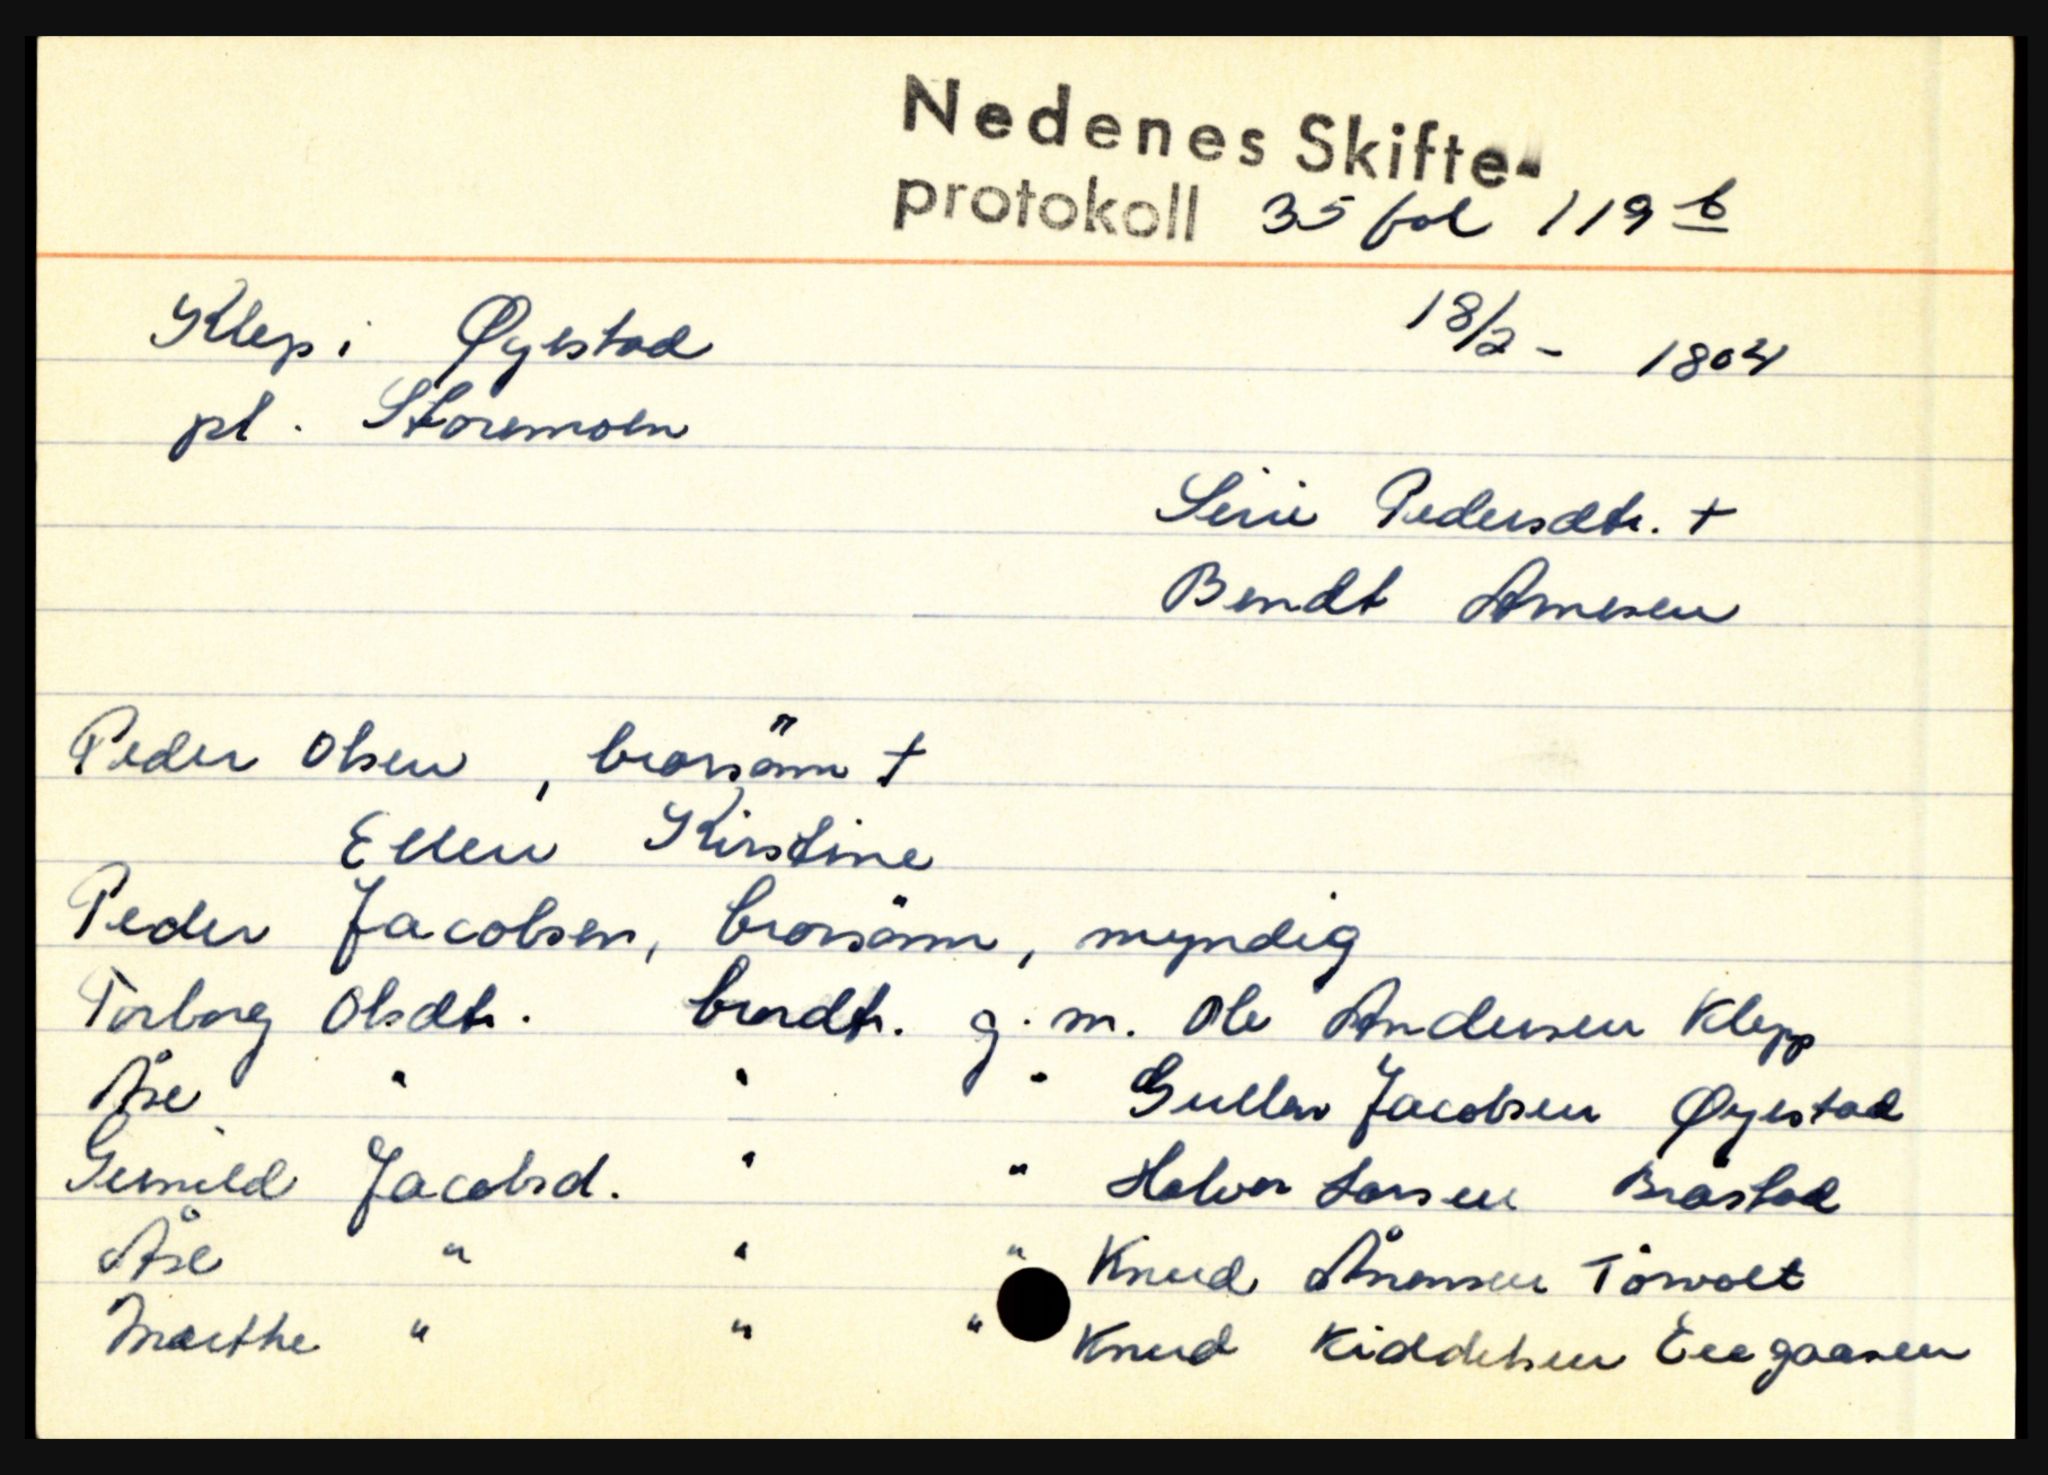 Nedenes Skifte-
protokoll 35 fol 119 b
Klep i Øyestad 18/2 - 1804
pl. Storemoen
Siri Pedersdtr. +
Bendt Arnesen
Peder Olsen, brorsönn +
Ellen Kirstine
Peder Jacobsen, brorsönn, myndig
Torborg Olsdtr. brordtr. g. m. Ole Andersen Klepp
Åse " " " Gullov Jacobsen Øyestad
Gunild Jacobsd. " " Halvor Larsen Bråstad
Åse " " " Knud Ånonsen Torvolt
Marthe " " " Knud Kiddelsen Eeegaasen